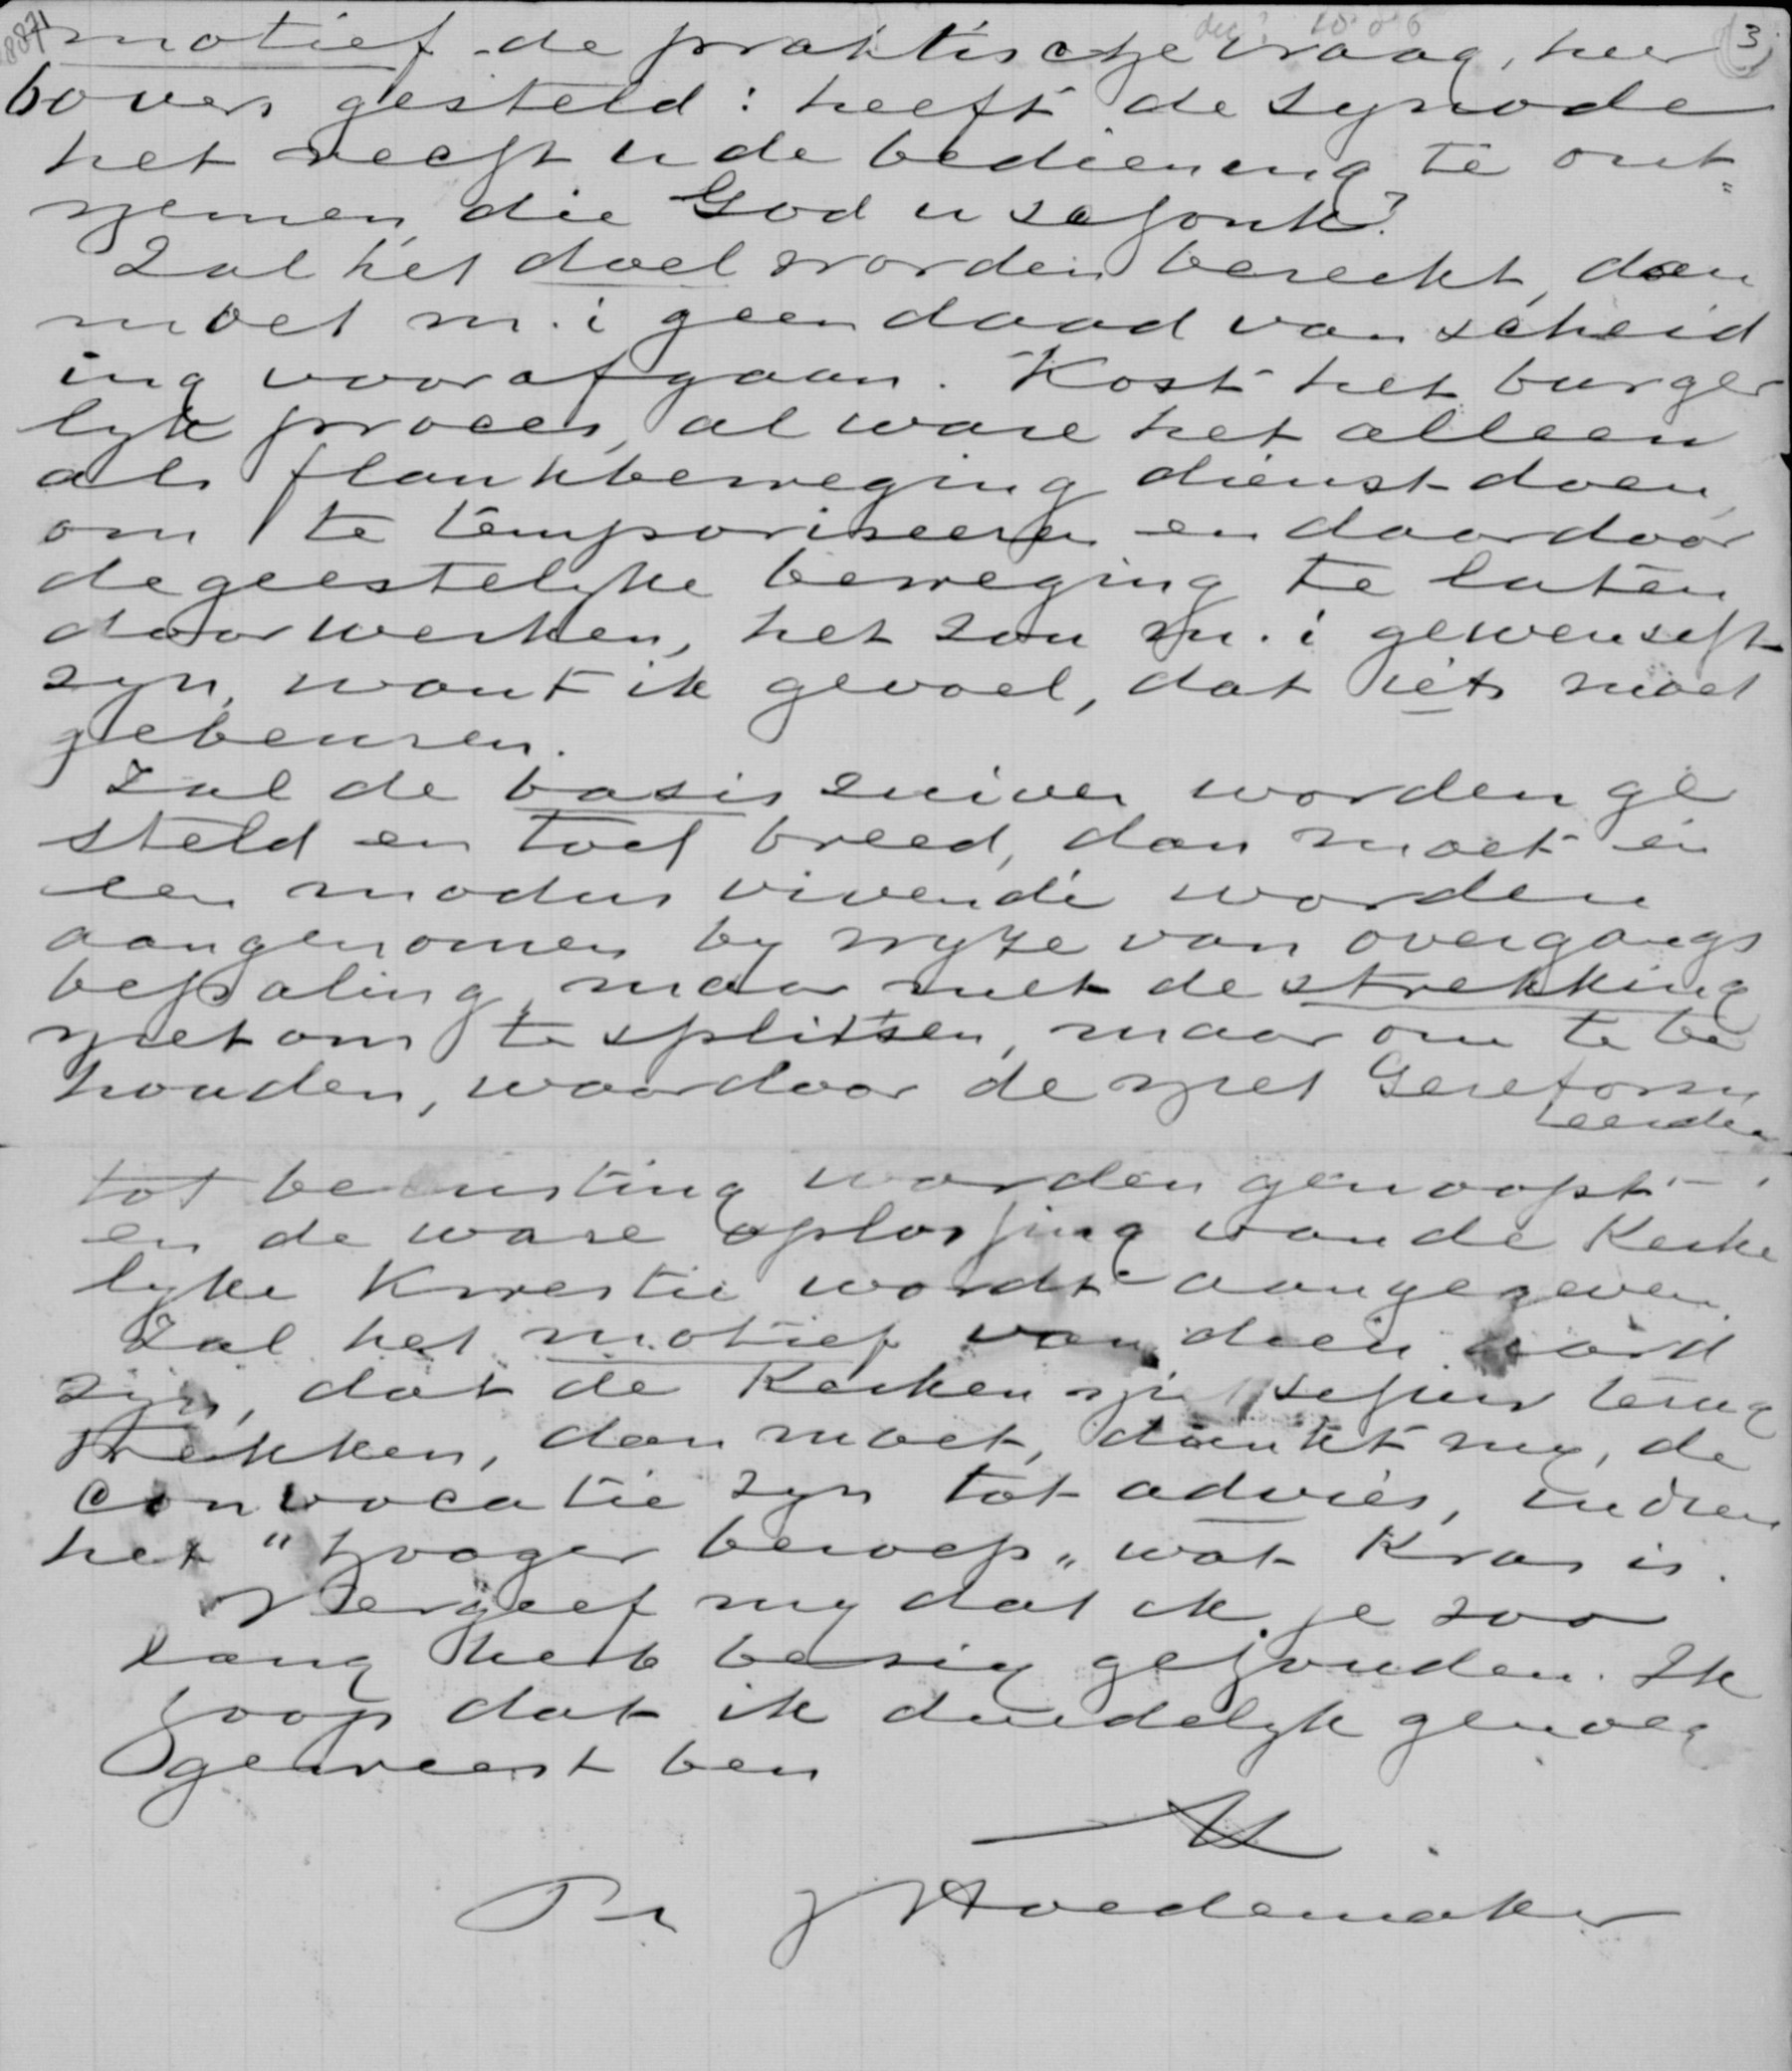 motief de praktische vraag, hier 3
boven gesteld: heeft de Synode
het recht u de bediening te ont=
nemen, die God u schonk?
Zal het doel worden bereikt, dan
moet m. i geen daad van scheid
ing voorafgaan. Kost het burger
lyk proces, al ware het alleen
als flankbeweging dienst doen,
om te temporiseeren en daardoor
de geestelyke beweging te laten
doorwerken, het zou m. i gewenscht
zyn, want ik gevoel, dat iets moet
gebeuren.
Zal de basis zuiver worden ge
steld en toch breed, dan moet er
een modus vivendi worden
aangenomen by wyze van overgangs
bepaling, maar met de strekking
niet om te splitsen, maar om te be
houden, waardoor de niet Gereform
eerden
tot berusting worden genoopt
en de ware oplossing van de Kerke
lyke Kwestie wordt aangegeven.
Zal het motief van dien aard
zyn, dat de Kerken niet schuw terug
trekken, dan moet, dunkt my, de
convocatie zyn tot advies, indien
het "hooger beroep" wat Kras is.
Vergeef my dat ik je zoo
lang heb bezig gehouden. Ik
hoop dat ik duidelyk genoeg
geweest ben
tt
Ph J Hoedemaker